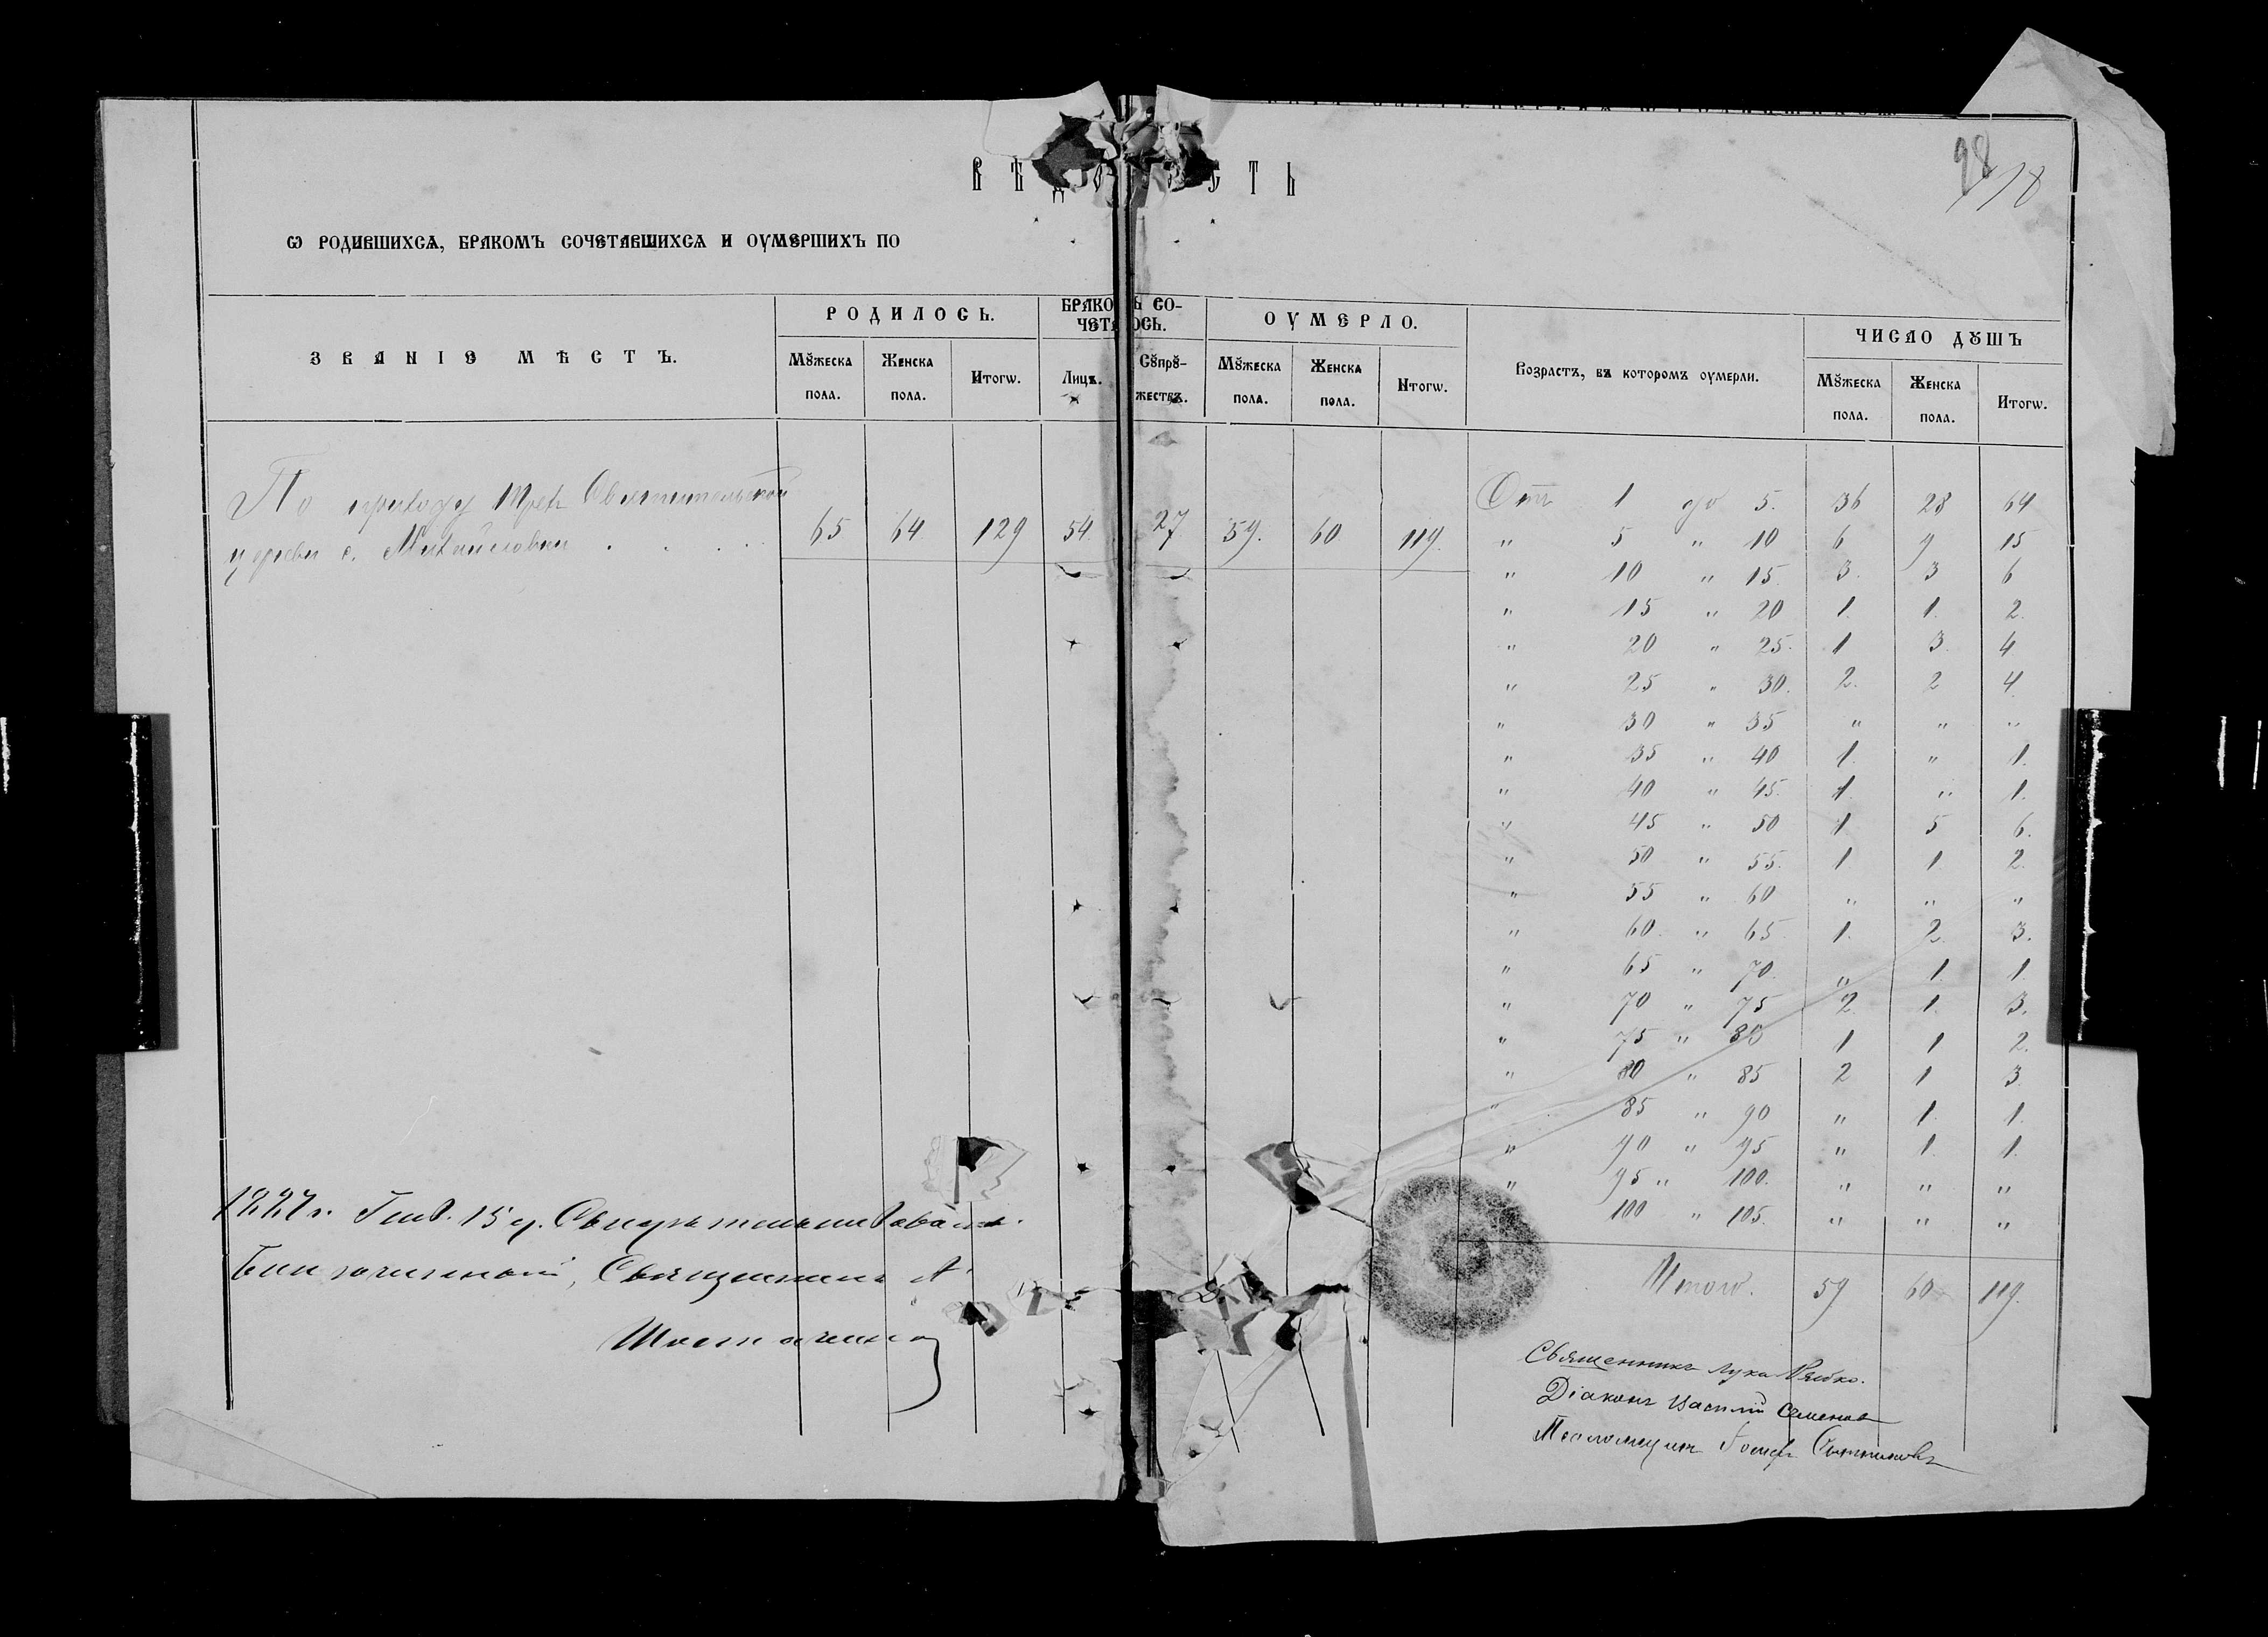 ВѢДО СТЬ
98
118
Ѡ РОДИВШИХСѦ, БРАКОМЪ СОЧЕТАВШИХСѦ И ОУМЕРШИХЪ ПО
ЗВАНІЕ МѢСТЪ. РОДИЛОСЬ. БРАКО Ъ СО-ЧЕТА ОСЬ. ОУМЕРЛО. Возрастъ, въ которомъ оумерли. ЧИСЛО ДꙊШЪ
Мꙋжеска пола. Женска пола. Итогѡ. Лицъ. Сꙋпрꙋ-жествъ. Мꙋжеска пола. Женска пола. Итогѡ. Мꙋжеска пола. Женска пола. Итогѡ.
По приходу Трехъ Святительской
церкви с. Михайловки . . . . 65 64 129 54 27 59. 60 119.
Отъ 1 до 5. 36 28 64
" 5 " 10 6 9 15
" 10 " 15. 3. 3 6
" 15 " 20 1. 1. 2.
" 20 " 25. 1 3. 4
" 25 " 30. 2. 2 4.
" 30 " 35 " " "
" 35 " 40 1. " 1.
" 40 " 45. 1. " 1.
" 45 " 50 1 5 6.
" 50 " 55. 1 1 2.
" 55 " 60 " " "
" 60. " 65 1. 2. 3.
" 65 " 70. " 1. 1.
" 70 " 75 2. 1. 3.
" 75 " 80 1 1 2.
" 80 " 85 2 1 3
" 85 " 90 " 1. 1.
" 90 " 95 " 1. 1.
" 95 " 100. " " "
" 100 " 105. " " "
Итого. 59 60 119.
15 д. Свидѣтельствовалъ
Благочинный, Священникъ
Священникъ Лука
Діаконъ Василій Семенов
Псаломщикъ Іосифъ